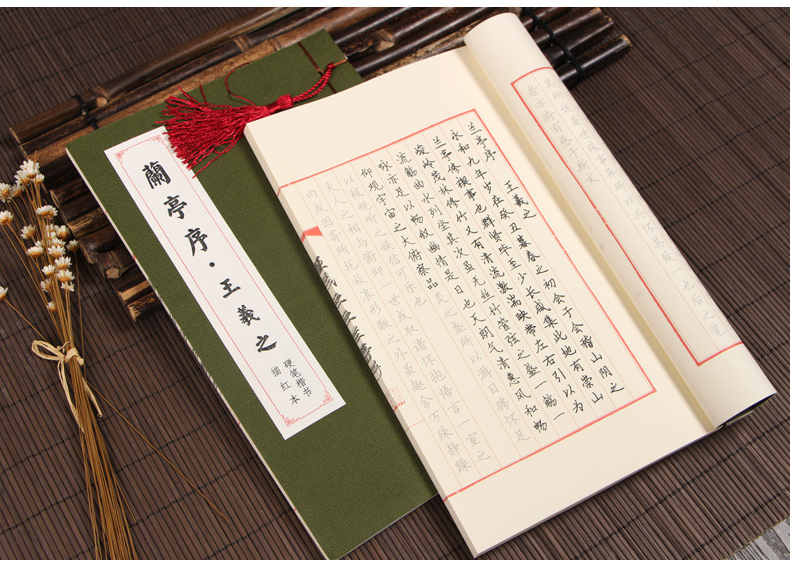 蘭亭序·王羲之
硬笔楷书
描红本
其所述虽世殊事异所以兴怀其致一也后之览
者亦将有感于斯文
兰亭序 王羲之
永和九年岁在癸丑暮春之初会于会稽山阴之
兰亭修禊事也群贤毕至少长咸集此地有崇山
峻岭茂林修竹又有清流激湍映带左右引以为
流觞曲水列坐其次虽无丝竹管弦之盛一觞一
咏亦足以畅叙幽情是日也天朗气清惠风和畅
仰观宇宙之大俯察品类之盛所以游目骋怀足
以极视听之娱信可乐也
夫人之相与俯仰一世或取诸怀抱悟言一室之
内或因寄所托放浪形骸之外虽趣舍万殊静躁